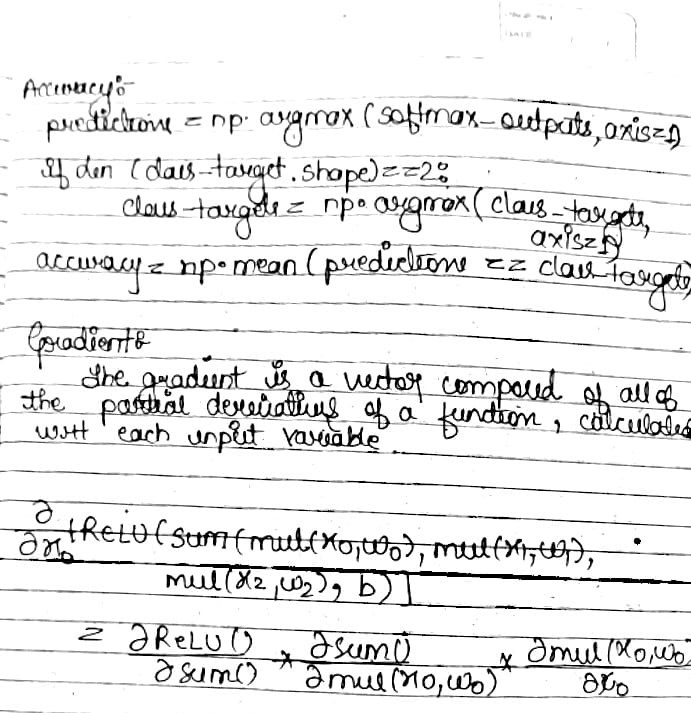 Accuracy:-
predictions = np. argmax (softmax-outputs, axis=1)
If len (class-target.shape)==2:
class-targets = np. argmax (class-targets,
axis=1)
accuracy = np.mean (predictions == class-targets)
Gradient:
The gradient is a vector composed of all of
the partial derivatives of a function, calculated
wrt each input variable.
∂/∂x₀ [ReLU (sum (mul(x₀,w₀), mul(x₁,w₁),
mul(x₂,w₂), b)]
= ∂ReLU()/∂sum() * ∂sum()/∂mul(x₀,w₀) * ∂mul(x₀,w₀)/∂x₀